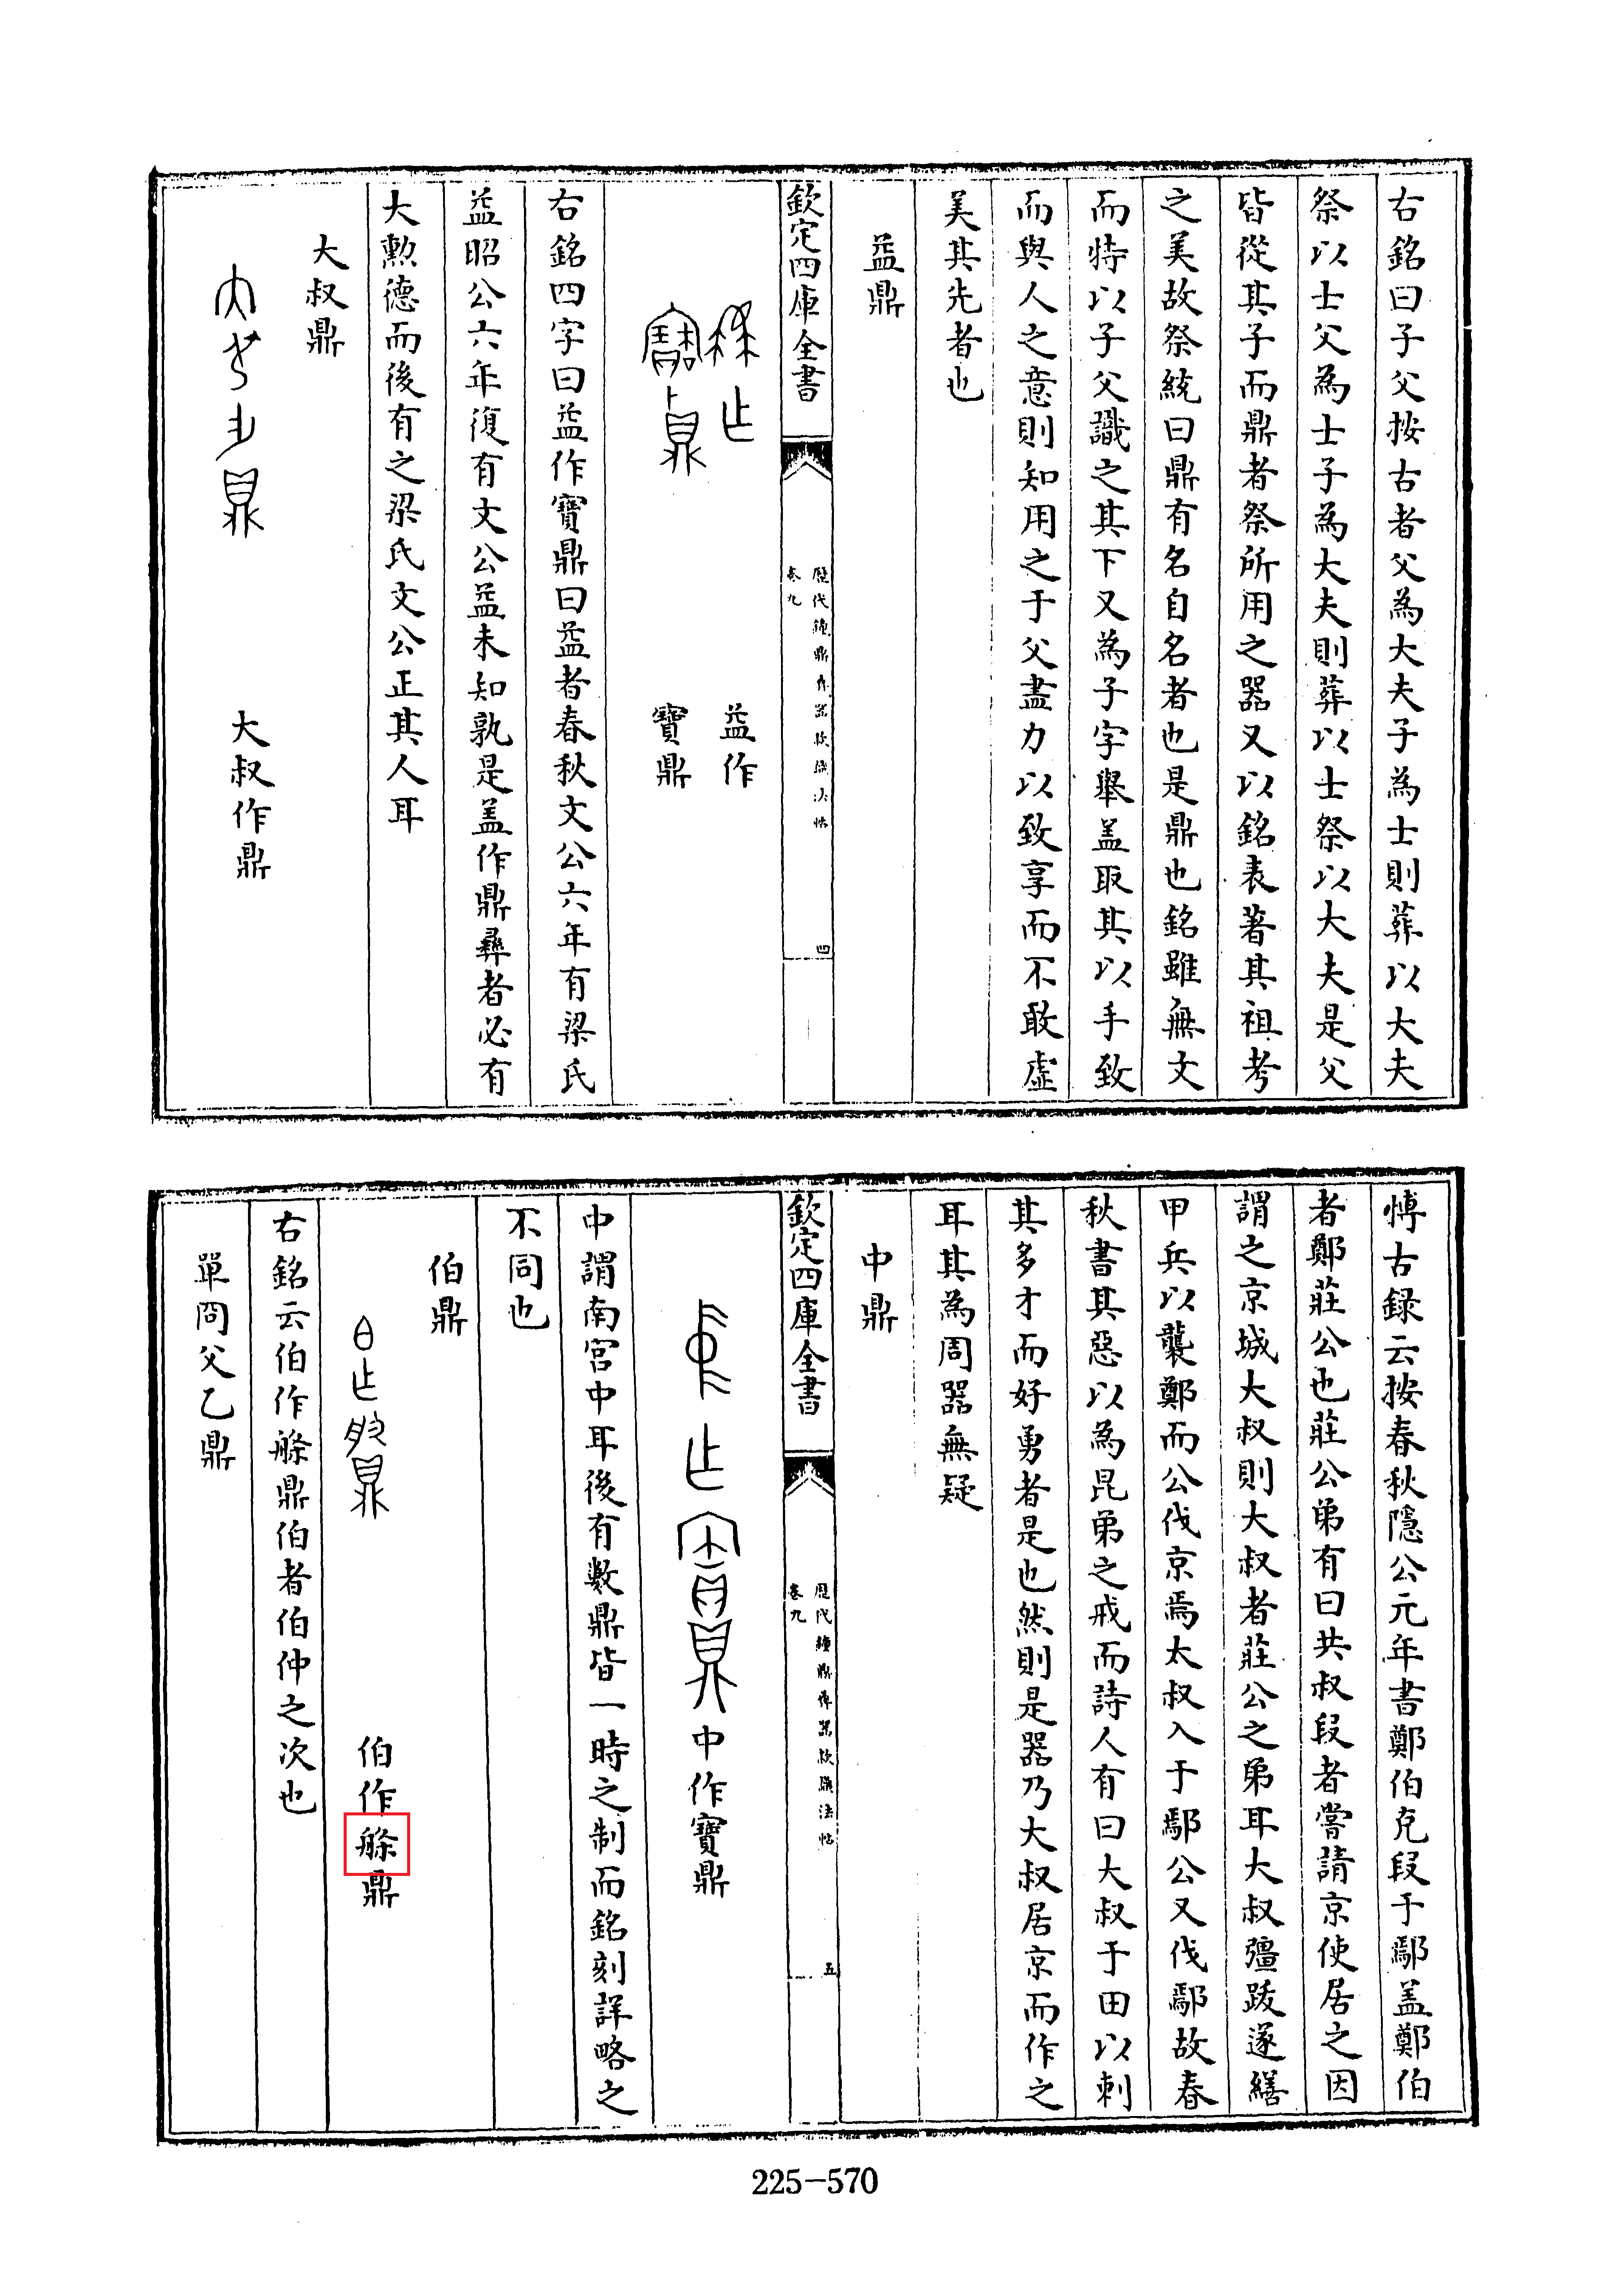 右銘曰子父按古者父為大夫子為士則葬以大夫
祭以士父為士子為大夫則葬以士祭以大夫是父
皆從其子而鼎者祭所用之器又以銘表著其祖考
之美故祭統曰鼎有名自名者也是鼎也銘雖無文
而特以子父識之其下又為子字舉盖取其以手致
而與人之意則知用之于父盡力以致享而不敢虛
美其先者也
益鼎
欽定四庫全書
歷代鐘鼎彝器款識法帖
卷九
四
益作
寶鼎
右銘四字曰益作寶鼎曰益者春秋文公六年有梁氏
益昭公六年復有文公益未知孰是盖作鼎彝者必有
大勲德而後有之梁氏文公正其人耳
大叔鼎
大叔作鼎
愽古録云按春秋隱公元年書鄭伯克段于鄢盖鄭伯
者鄭莊公也莊公弟有曰共叔段者嘗請京使居之因
謂之京城大叔則大叔者莊公之弟耳大叔彊跋遂繕
甲兵以襲鄭而公伐京焉太叔入于鄢公又伐鄢故春
秋書其惡以為昆弟之戒而詩人有曰大叔于田以刺
其多才而好勇者是也然則是器乃大叔居京而作之
耳其為周器無疑
中鼎
欽定四庫全書
歷代鐘鼎彝器款識法帖
卷九
五
中作寶鼎
中謂南宮中耳後有數鼎皆一時之制而銘刻詳略之
不同也
伯鼎
伯作䑾鼎
右銘云伯作䑾鼎伯者伯仲之次也
單冏父乙鼎
225-570